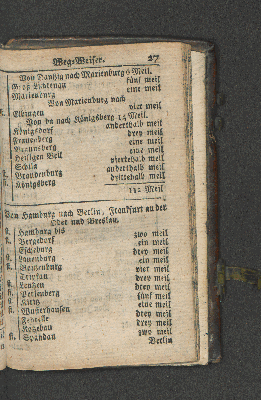 Weg-Weiser. 27
Von Dantzig nach Marienburg 6 Meil.
Groß Lichtenau fünf meil
Marienburg eine meil
Von Marienburg nach
st. Elbingen vier meil
Von da nach Königsberg 14 Meil.
Königsdorf anderthalb meil
Frauenberg drey meil
Braunsberg eine meil
Heiligen Beil eine meil
vierdehalb meil
st. Brandenburg anderthalb meil
st. Königsberg dritthalb meil
112 Meil
Von Hamburg nach Berlin, Franckfurt an der
Oder und Breslau.
st. Hamburg bis zwo meil
st. Bergedorf ein meil
Escheburg drey meil
st. Lauenburg ein meil
st. Boytzenburg vier meil
drey meil
st. Lentzen drey meil
st. Perleberg fünf meil
st. Kiritz eine meil
st. Wusterhausen drey meil
Fehrbelle drey meil
zwo meil
st. Spandau Berlin